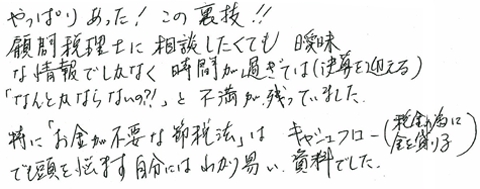 やっぱりあった！この裏技！！
顧問税理士に相談したくても曖昧
な情報でしかなく時間が過ぎては（決算を迎える）
「なんとかならないの？！」と不満が残っていました。
特に「お金が不要な節税法」はキャッシュフロー（税金の為に金を借りる）
でも頭を悩ます自分にはわかり易い資料でした。